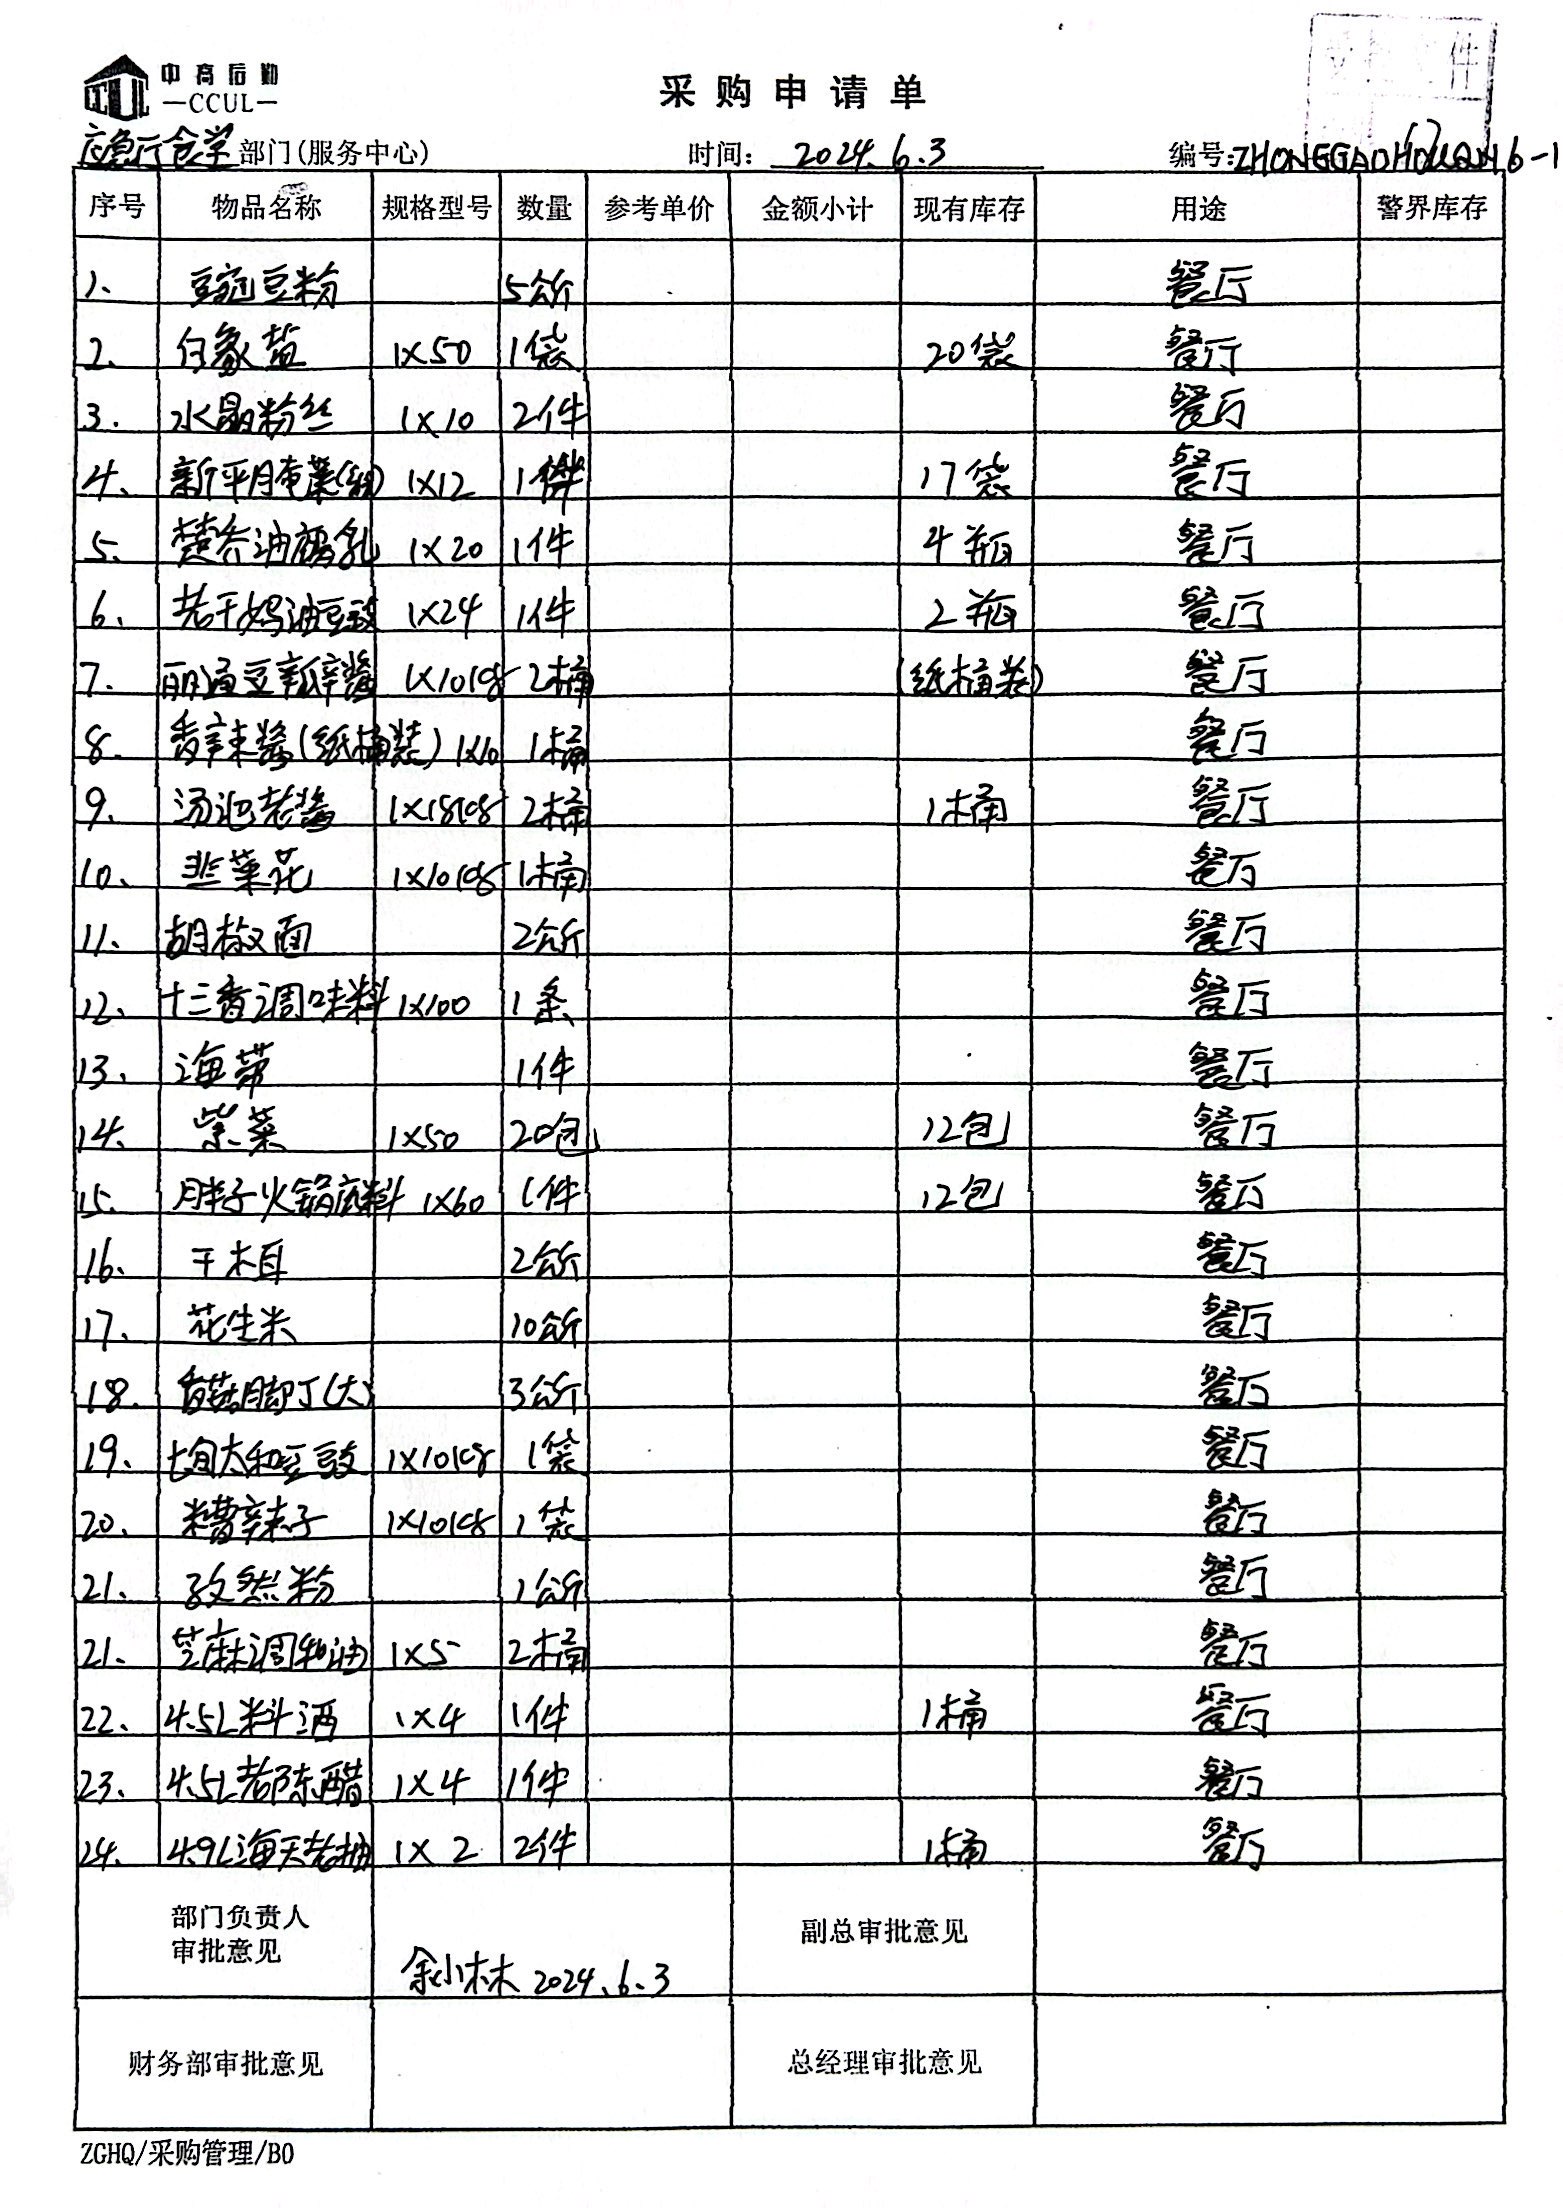 中高后勤
—CCUL—
受控文件
采购申请单
应急厅食堂部门(服务中心) 时间: 2024.6.3 编号:ZHONGGAOHOUQIN6-1
序号 物品名称 规格型号 数量 参考单价 金额小计 现有库存 用途 警界库存
1. 豌豆粉 5公斤 餐厅
2. 白象盐 1X50 1袋 20袋 餐厅
3. 水晶粉丝 1X10 2件 餐厅
4. 新平腌菜 1X12 1件 17袋 餐厅
5. 楚香油腐乳 1X20 1件 4瓶 餐厅
6. 老干妈油豆豉 1X24 1件 2瓶 餐厅
7. 丽通豆瓣酱 1X10kg 2桶 (纸桶装) 餐厅
8. 香辣酱(纸桶装) 1X10 1桶 餐厅
9. 汤池老酱 1X18kg 2桶 1桶 餐厅
10. 韭菜花 1X10kg 1桶 餐厅
11. 胡椒面 2公斤 餐厅
12. 十三香调味料 1X100 1条 餐厅
13. 海带 1件 餐厅
14. 紫菜 1X50 20包 12包 餐厅
15. 胖子火锅底料 1X60 1件 12包 餐厅
16. 干木耳 2公斤 餐厅
17. 花生米 10公斤 餐厅
18. 香菇脚丁(大) 3公斤 餐厅
19. 七旬太和豆豉 1X10kg 1袋 餐厅
20. 糟辣子 1X10kg 1袋 餐厅
21. 孜然粉 1公斤 餐厅
21. 芝麻调和油 1X5 2桶 餐厅
22. 4.5L料酒 1X4 1件 1桶 餐厅
23. 4.5L老陈醋 1X4 1件 餐厅
24. 4.9L海天老抽 1X2 2件 1桶 餐厅
部门负责人
审批意见
余小林 2024.6.3
副总审批意见
财务部审批意见 总经理审批意见
ZGHQ/采购管理/B0